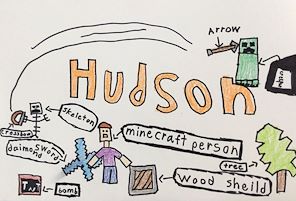 ARROW
Hudson
skeleton
crossbow
minecraft person
daimond sword
tree
wood sheild
bomb